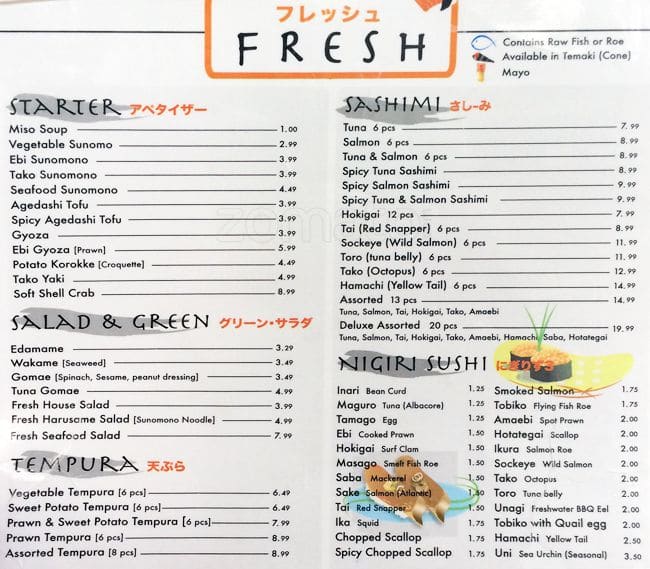 フレッシュ
FRESH
Contains Raw Fish or Roe
Available in Temaki (Cone)
Mayo
STARTER アペタイザー
Miso Soup 1.00
Vegetable Sunomo 2.99
Ebi Sunomono 3.99
Tako Sunomono 3.99
Seafood Sunomono 4.49
Agedashi Tofu 3.99
Spicy Agedashi Tofu 3.99
Gyoza 3.99
Ebi Gyoza [Prawn] 5.99
Potato Korokke [Croquette] 4.49
Tako Yaki 4.99
Soft Shell Crab 8.99
SALAD & GREEN グリーン・サラダ
Edamame 3.29
Wakame [Seaweed] 3.49
Gomae [Spinach, Sesame, peanut dressing] 3.49
Tuna Gomae 4.99
Fresh House Salad 3.99
Fresh Harusame Salad [Sunomono Noodle] 4.99
Fresh Seafood Salad 7.99
TEMPURA 天ぷら
Vegetable Tempura [6 pcs] 6.49
Sweet Potato Tempura [6 pcs] 6.49
Prawn & Sweet Potato Tempura [6 pcs] 7.99
Prawn Tempura [6 pcs] 8.99
Assorted Tempura [8 pcs] 8.99
SASHIMI さしーみ
Tuna 6 pcs 7.99
Salmon 6 pcs 8.99
Tuna & Salmon 6 pcs 8.99
Spicy Tuna Sashimi 8.99
Spicy Salmon Sashimi 9.99
Spicy Tuna & Salmon Sashimi 9.99
Hokigai 12 pcs 7.99
Tai (Red Snapper) 6 pcs 8.99
Sockeye (Wild Salmon) 6 pcs 11.99
Toro (tuna belly) 6 pcs 11.99
Tako (Octopus) 6 pcs 12.99
Hamachi (Yellow Tail) 6 pcs 14.99
Assorted 13 pcs 14.99
Tuna, Salmon, Tai, Hokigai, Tako, Amaebi
Deluxe Assorted 20 pcs 19.99
Tuna, Salmon, Tai, Hokigai, Tako, Amaebi, Hamachi, Saba, Hotategai
NIGIRI SUSHI にぎりずし
Inari Bean Curd 1.25
Maguro Tuna (Albacore) 1.25
Tamago Egg 1.25
Ebi Cooked Prawn 1.50
Hokigai Surf Clam 1.50
Masago Smelt Fish Roe 1.50
Saba Mackerel 1.50
Sake Salmon (Atlantic) 1.50
Tai Red Snapper 1.50
Ika Squid 1.75
Chopped Scallop 1.75
Spicy Chopped Scallop 1.75
Smoked Salmon 1.75
Tobiko Flying Fish Roe 1.75
Amaebi Spot Prawn 2.00
Hotategai Scallop 2.00
Ikura Salmon Roe 2.00
Sockeye Wild Salmon 2.00
Tako Octopus 2.00
Toro Tuna belly 2.00
Unagi Freshwater BBQ Eel 2.00
Tobiko with Quail egg 2.00
Hamachi Yellow Tail 2.50
Uni Sea Urchin (Seasonal) 3.50